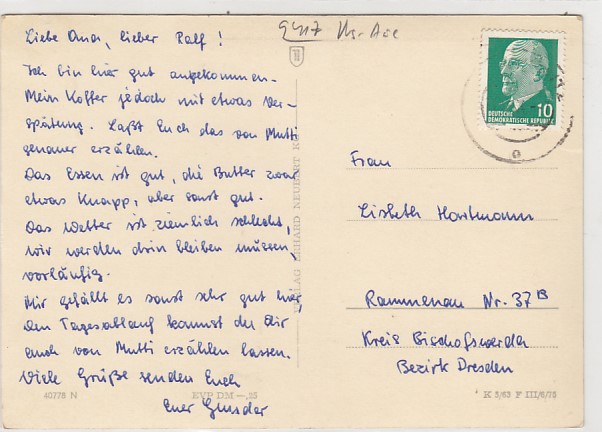 Liebe Oma, lieber Ralf!
Ich bin hier gut angekommen.
Mein Koffer jedoch mit etwas Ver-
spätung. Laßt Euch das von Mutti
genauer erzählen.
Das Essen ist gut, die Butter zwar
etwas knapp, aber sonst gut.
Das Wetter ist ziemlich schlecht,
wir werden drin bleiben müssen,
vorläufig.
Mir gefällt es sonst sehr gut hier,
den Tagesablauf kannst du Dir
auch von Mutti erzählen lassen.
Viele Grüße senden Euch
Euer
40778 N
EVP DM -,25
VERLAG ERHARD NEUBERT K
9417
DEUTSCHE
DEMOKRATISCHE REPUBLIK
10
Frau
Lisbeth Hartmann
Rammenau Nr. 37B
Kreis Bischofswerda
Bezirk Dresden
K 3/63 F III/6/75